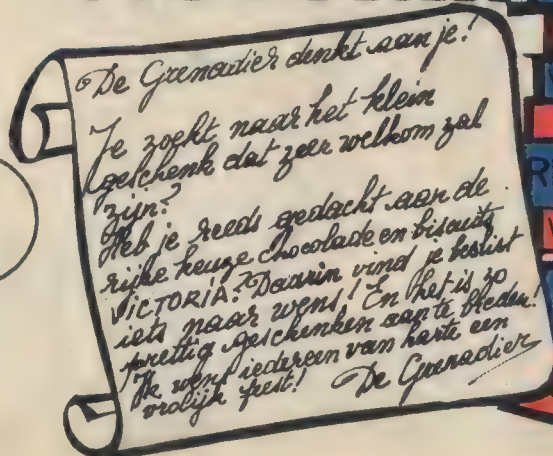 De Grenadier denkt aan je!
Je zoekt naar het klein
geschenk dat zeer welkom zal
zijn?
Heb je reeds gedacht aan de
rijke keuze chocolade en biscuits
VICTORIA? Daarin vind je beslist
iets naar wens! En het is zo
prettig geschenken aan te bieden!
Ik wens iedereen van harte een
vrolijk feest! De Grenadier